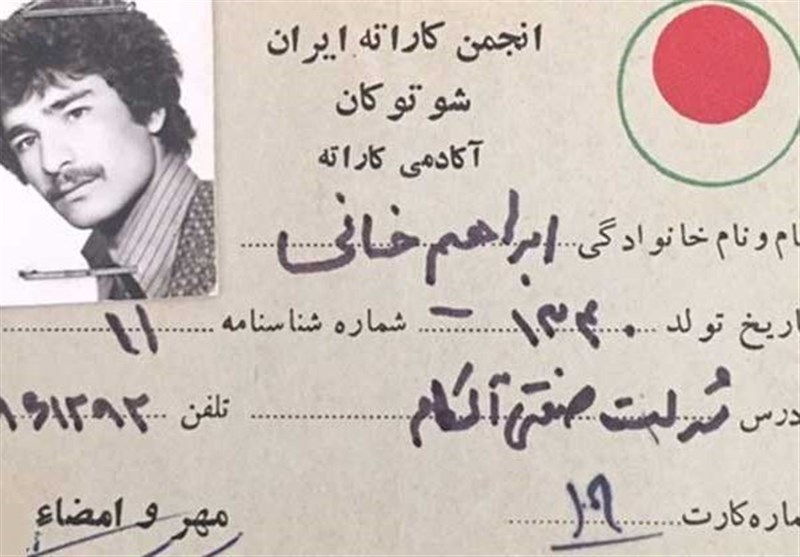 انجمن کاراته ایران
شوتوکان
آکادمی کاراته
نام و نام خانوادگی ابراهیم خانی
اریخ تولد شماره شناسنامه ۱۱
درس شرکت صنعتی تلفن
ماره کارت
مهر و امضاء